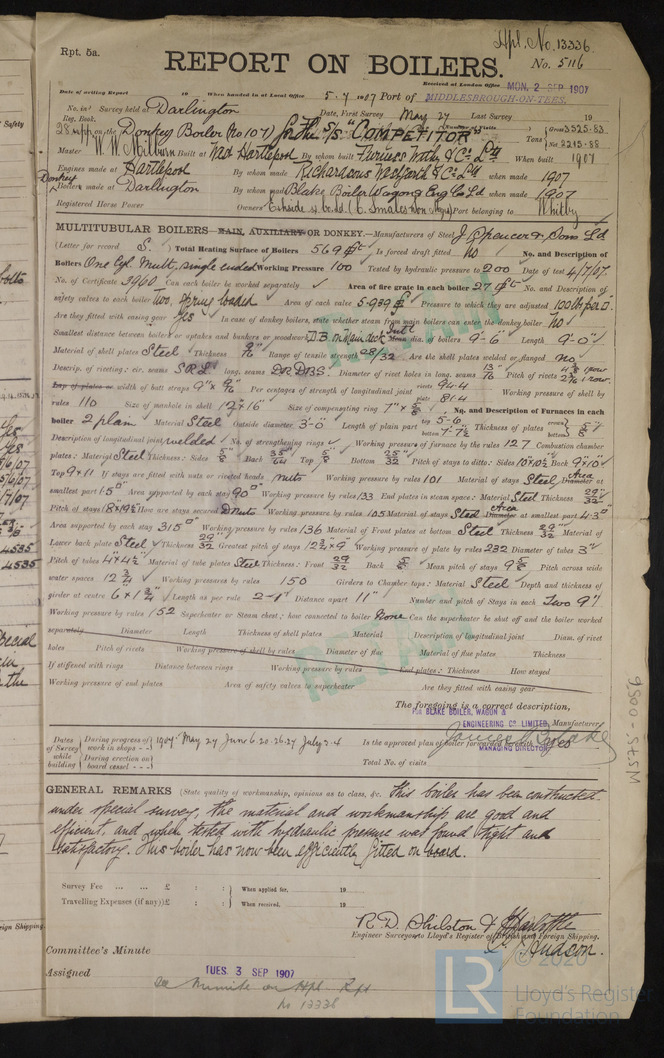 Hpl. No. 13336.
Rpt. 5a.
REPORT ON BOILERS.
No. 5116
Received at London Office MON. 2 SEP 1907
Date of writing Report 19 When handed in at Local Office 5.7.1907 Port of MIDDLESBROUGH-ON-TEES.
No. in Reg. Book. Survey held at Darlington Date, First Survey May 27 Last Survey 19
on the Donkey Boiler (No 107) for the S/S "COMPETITOR" Tons Gross 3525.83 Net 2245.88
Master W. W. Milburn Built at West Hartlepool By whom built Furness Withy & Co Ltd When built 1907
Engines made at Hartlepool By whom made Richardsons Westgarth & Co Ltd when made 1907
Donkey Boilers made at Darlington By whom made Blake Boiler Wagon & Eng Co Ld when made 1907
Registered Horse Power Owners Port belonging to Whitby
MULTITUBULAR BOILERS MAIN, AUXILIARY OR DONKEY.—Manufacturers of Steel J. Spencer & Sons Ld
(Letter for record S.) Total Heating Surface of Boilers 569 ft Is forced draft fitted no No. and Description of
Boilers One Cyl. Mult, single ended Working Pressure 100 Tested by hydraulic pressure to 200 Date of test 4/7/07.
No. of Certificate 3960. Can each boiler be worked separately Area of fire grate in each boiler 27 ft No. and Description of
safety valves to each boiler Two, spring loaded Area of each valve 5.939 Pressure to which they are adjusted 100 lbs per
Are they fitted with easing gear Yes In case of donkey boilers, state whether steam from main boilers can enter the donkey boiler no
Smallest distance between boilers or uptakes and bunkers or woodwork D.B. on main deck Mean dia. of boilers 9'-6" Length 9'-0"
Material of shell plates Steel Thickness 9/16" Range of tensile strength 28/32 Are the shell plates welded or flanged no
Descrip. of riveting: cir. seams S.R.L. long. seams D.R.D.B.S. Diameter of rivet holes in long. seams 13/16" Pitch of rivets
Lap of plates or width of butt straps 9" x 9/16 Per centages of strength of longitudinal joint rivets 94.4 plate 81.4 Working pressure of shell by
rules 110 Size of manhole in shell 12" x 16" Size of compensating ring No. and Description of Furnaces in each
boiler 2 plain Material Steel Outside diameter 3'-0" Length of plain part top 5'-6 bottom Thickness of plates crown bottom 5/8"
Description of longitudinal joint welded No. of strengthening rings Working pressure of furnace by the rules 127 Combustion chamber
plates: Material Steel Thickness: Sides 5/8" Back Top 5/8" Bottom Pitch of stays to ditto: Sides 10" x 10½" Back 9" x 10"
Top 9 x 11 If stays are fitted with nuts or riveted heads nuts Working pressure by rules 101 Material of stays Steel Area Diameter at
smallest part Area supported by each stay 90 Working pressure by rules 133 End plates in steam space: Material Steel Thickness 29/32
Pitch of stays 18 x 19½ How are stays secured D Nuts Working pressure by rules 105 Material of stays Steel Area Diameter at smallest part
Area supported by each stay 315 Working pressure by rules 136 Material of Front plates at bottom Steel Thickness 29/32" Material of
Lower back plate Steel Thickness 29/32 Greatest pitch of stays 12¾ x 9" Working pressure of plate by rules 232 Diameter of tubes 3"
Pitch of tubes 4" x 4½" Material of tube plates Steel Thickness: Front 29/32 Back 5/8" Mean pitch of stays Pitch across wide
water spaces 12¾" Working pressures by rules 150 Girders to Chamber tops: Material Steel Depth and thickness of
girder at centre 6" x 1¾" Length as per rule Distance apart 11" Number and pitch of Stays in each Two 9"
Working pressure by rules 152 Superheater or Steam chest; how connected to boiler None Can the superheater be shut off and the boiler worked
separately Diameter Length Thickness of shell plates Material Description of longitudinal joint Diam. of rivet
holes Pitch of rivets Working pressure of shell by rules Diameter of flue Material of flue plates Thickness
If stiffened with rings Distance between rings Working pressure by rules End plates: Thickness How stayed
Working pressure of end plates Area of safety valves to superheater Are they fitted with easing gear
RETAIN
RETAIN
The foregoing is a correct description,
FOR BLAKE BOILER, WAGON & ENGINEERING CO. LIMITED, Manufacturer
MANAGING DIRECTOR
Dates of Survey while building During progress of work in shops 1907: May 27 June 6. 20. 26. 27 July 3. 4 Is the approved plan of boiler forwarded herewith Yes
During erection on board vessel Total No. of visits
GENERAL REMARKS (State quality of workmanship, opinions as to class, &c. This boiler has been constructed
under special survey, the material and workmanship are good and
efficient, and when tested with hydraulic pressure was found tight and
satisfactory. This boiler has now been efficiently fitted on board.
Survey Fee £ : : When applied for, 19
Travelling Expenses (if any) £ : : When received, 19
R. D. Shilston &
Engineer Surveyors to Lloyd's Register of British and Foreign Shipping.
Committee's Minute
Assigned TUES. 3 SEP 1907
see minute on Hpl. Rpt
No 13336
WSTS-0056
LR
© 2020
Lloyd's Register
Foundation